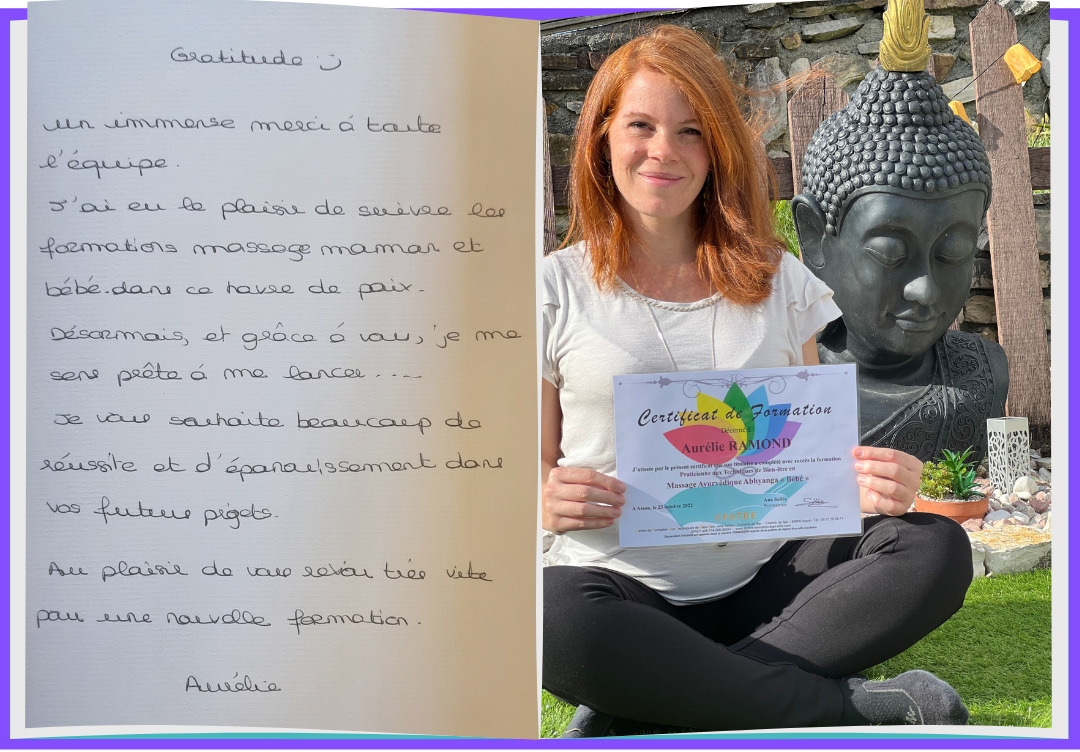 Gratitude :)
un immense merci à toute
l'équipe.
J'ai eu le plaisir de suivre les
formations massage maman et
bébé dans ce havre de paix.
Désormais, et grâce à vous, je me
sens prête à me lancer....
Je vous souhaite beaucoup de
réussite et d'épanouissement dans
vos futurs projets.
Au plaisir de vous revoir très vite
pour une nouvelle formation.
Aurélie
Certificat de Formation
Décerné à
Aurélie RAMOND
J'atteste par le présent certificat que son titulaire a complété avec succès la formation
Praticienne aux Techniques de Bien-être en
Massage Ayurvédique Abhyanga « Bébé »
A Asson, le 23 octobre 2022